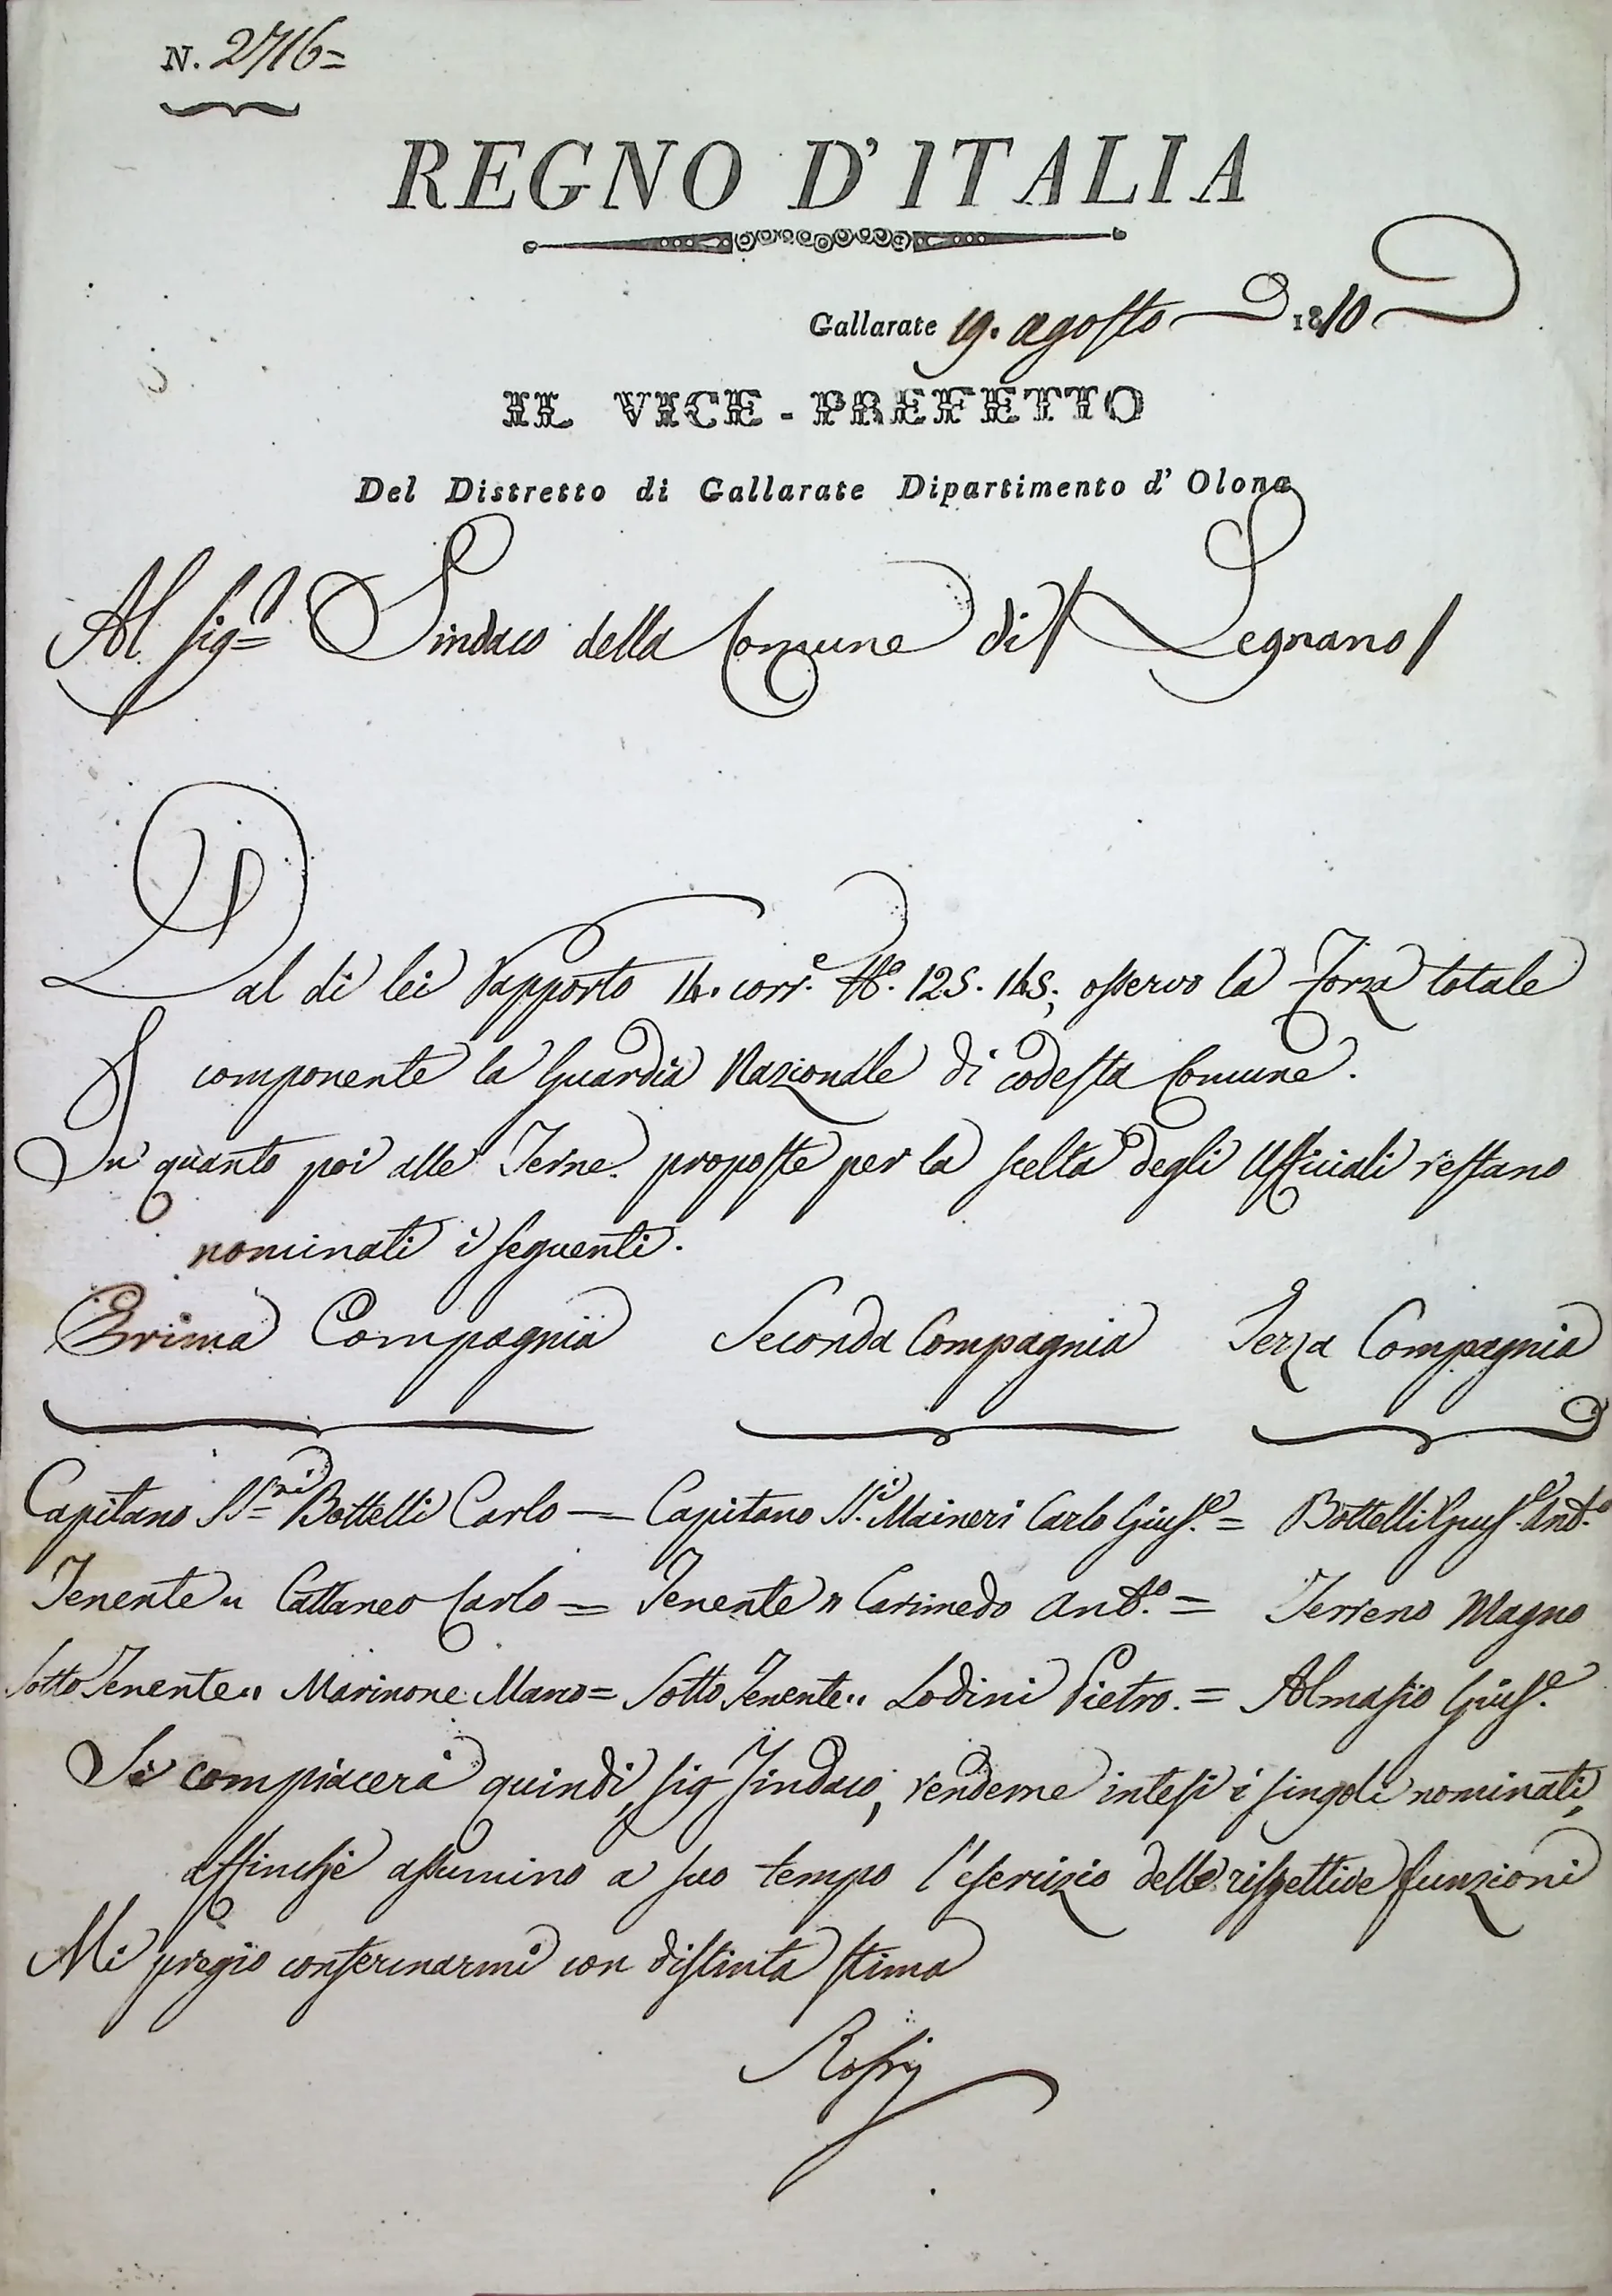 N. 2716=
REGNO D'ITALIA
Gallarate 19. agosto 1810
IL VICE-PREFETTO
Del Distretto di Gallarate Dipartimento d'Olona
Al Sig.r Sindaco della Comune di Legnano
Dal di lei Rapporto 14. corr.e N.o 125. 145; osservo la Forza totale
componente la Guardia Nazionale di codesta Comune.
In quanto poi alle Terne proposte per la scelta degli Ufficiali restano
nominati i seguenti.
Prima Compagnia Seconda Compagnia Terza Compagnia
Capitano SS.ri Bottelli Carlo = Capitano SS.i Maineri Carlo Gius.e = Bottelli Gius.e Ant.o
Tenente " Cattaneo Carlo = Tenente " Carimedo Ant.o = Terreno Magno
Sotto Tenente " Marinone Marco = Sotto Tenente " Lodini Pietro. = Almasio Gius.e
Si compiacerà quindi, Sig Sindaco, renderne intesi i singoli nominati,
affinchè assumino a suo tempo l'esercizio delle rispettive funzioni
Mi pregio confermarmi con distinta stima